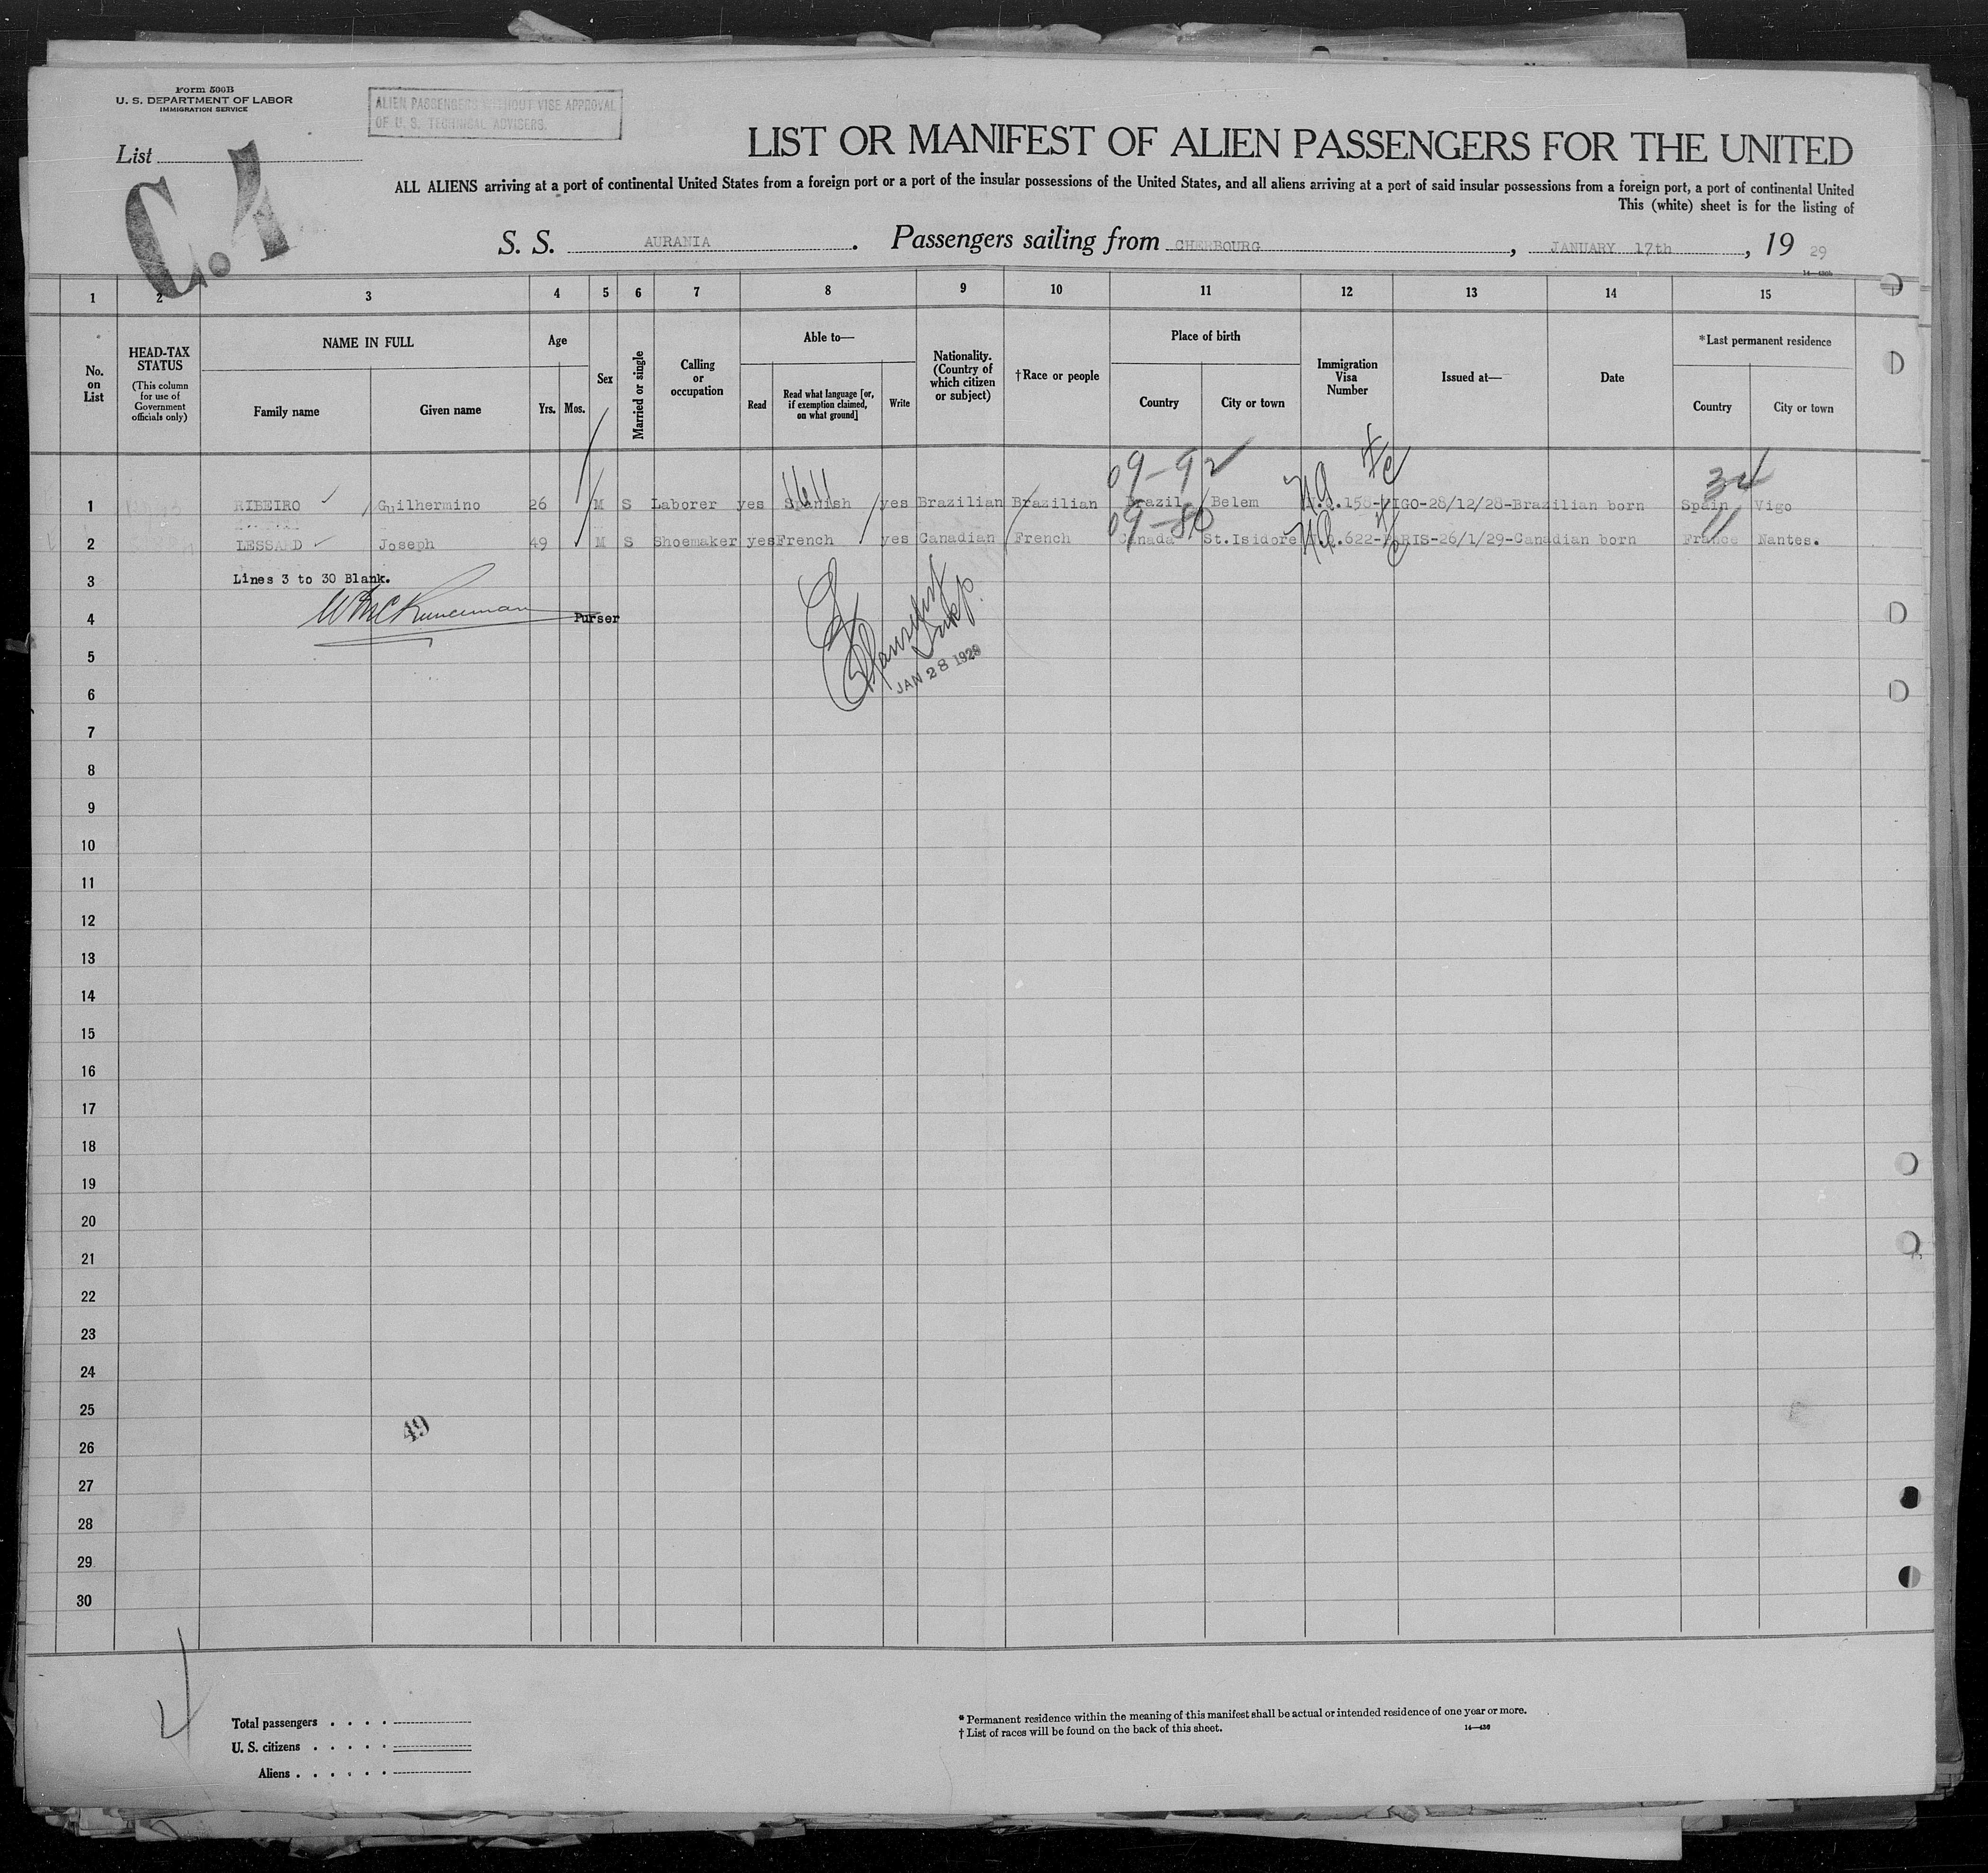 Form 500B
U. S. DEPARTMENT OF LABOR
IMMIGRATION SERVICE
ALIEN PASSENGERS WITHOUT VISE APPROVAL
OF U. S. TECHNICAL ADVISERS.
List
C.1
LIST OR MANIFEST OF ALIEN PASSENGERS FOR THE UNITED
ALL ALIENS arriving at a port of continental United States from a foreign port or a port of the insular possessions of the United States, and all aliens arriving at a port of said insular possessions from a foreign port, a port of continental United
This (white) sheet is for the listing of
S. S. AURANIA. Passengers sailing from CHERBOURG, JANUARY 17th, 19 29
1 2 3 4 5 6 7 8 9 10 11 12 13 14 15
No. on List
HEAD-TAX STATUS
(This column for use of Government officials only)
NAME IN FULL
Family name Given name
Age
Yrs. Mos.
Sex
Married or single
Calling or occupation
Able to—
Read
Read what language [or, if exemption claimed, on what ground]
Write
Nationality. (Country of which citizen or subject)
†Race or people
Place of birth
Country City or town
Immigration Visa Number
Issued at—
Date
*Last permanent residence
Country City or town
09-92
34
1 RIBEIRO Guilhermino 26 M S Laborer yes Spanish yes Brazilian Brazilian Brazil Belem 158-VIGO-28/12/28-Brazilian born Spain Vigo
09-80
11
2 LESSARD Joseph 49 M S Shoemaker yes French yes Canadian French Canada St.Isidore 622-PARIS-26/1/29-Canadian born France Nantes.
3 Lines 3 to 30 Blank.
4 Purser
Insp.
JAN 28 1929
5
6
7
8
9
10
11
12
13
14
15
16
17
18
19
20
21
22
23
24
25
49
26
27
28
29
30
Total passengers . . . .
U. S. citizens . . . . .
Aliens . . . . . .
* Permanent residence within the meaning of this manifest shall be actual or intended residence of one year or more.
† List of races will be found on the back of this sheet.
14—430